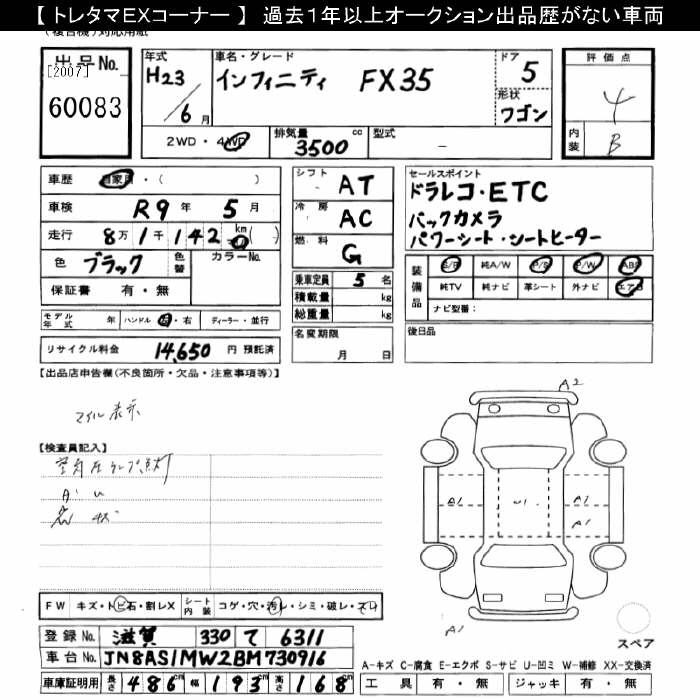 【 トレタマEXコーナー 】 過去1年以上オークション出品歴がない車両
出品No. [2007] 60083
年式 H23 / 6 月
車名・グレード インフィニティ FX35
ドア 5
形状 ワゴン
2WD・4WD
排気量 3500 cc
型式 -
評価点 4
内装 B
車歴 自家用・( )
車検 R9 年 5 月
走行 8万1千142 km ( )
色 ブラック 色替 カラーNo.
保証書 有・無
モデル年式 年 ハンドル 左・右 ディーラー・並行
リサイクル料金 14,650 円 預託済
シフト AT
冷房 AC
燃料 G
乗車定員 5 名
積載量 kg
総重量 kg
名変期限 月 日
セールスポイント
ドラレコ・ETC
バックカメラ
パワーシート・シートヒーター
装備品 S/R 純A/W P/S P/W ABS
純TV 純ナビ 革シート 外ナビ エアB
ナビ型番:
後日品
【出品店申告欄(不良箇所・欠品・注意事項等)】
マイル表示
【検査員記入】
空気圧ランプ点灯
A2
A1 U1 A1
A1
A1
スペア
FW キズ・トビ石・割レX シート内装 コゲ・穴・汚レ・シミ・破レ・スレ
登録No. 滋賀 330 て 6311
車台No. JN8AS1MW2BM730916
車庫証明用 長さ 486 cm 幅 193 cm 高さ 168 cm
A-キズ C-腐食 E-エクボ S-サビ U-凹ミ W-補修 XX-交換済
工具 有・無 ジャッキ 有・無